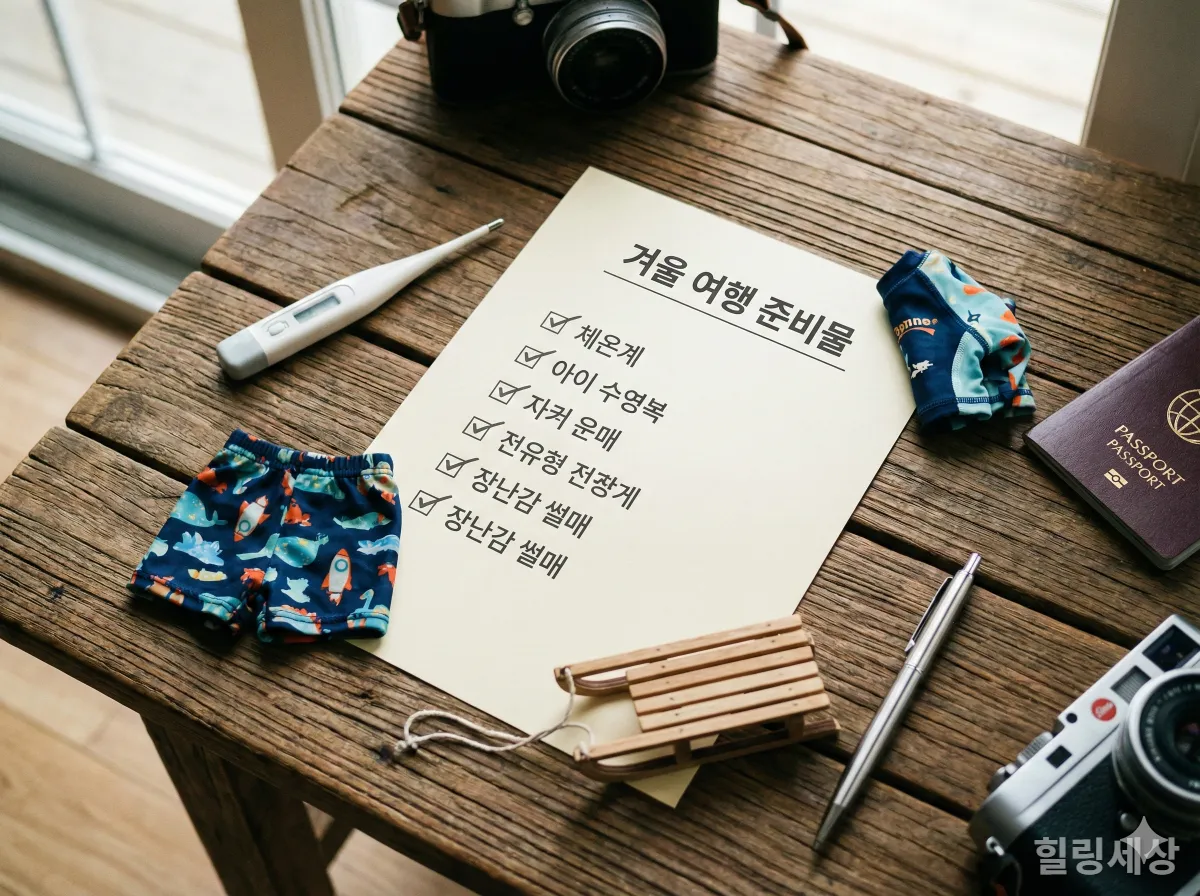 겨울 여행 준비물
체온계
아이 수영복
자커 운매
전유형 전광게
장난감 썰매
장난감 썰매
PASSPORT
PASSPORT
힐링세상